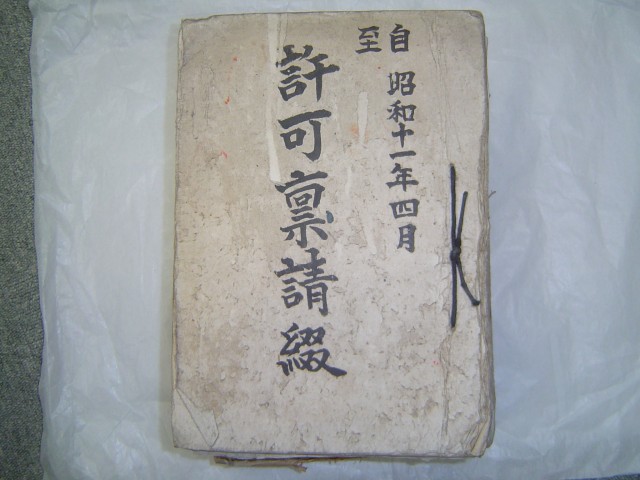 自 昭和十一年四月
至
許可禀請綴